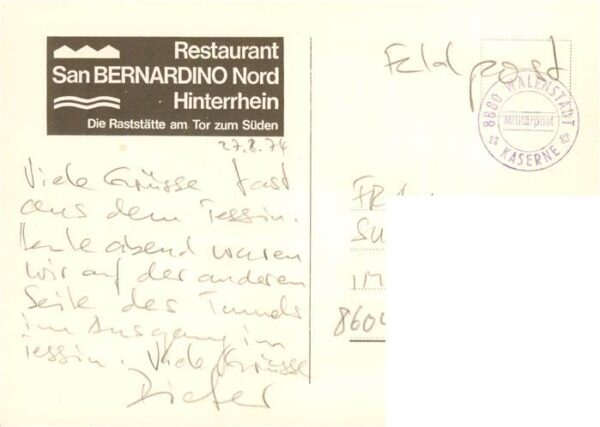 Restaurant
San BERNARDINO Nord
Hinterrhein
Die Raststätte am Tor zum Süden
27.8.74
Viele Grüsse fast
aus dem Tessin.
Heute abend waren
wir auf der anderen
Seite des Tunnels
im Ausgang im
Tessin. Viele Grüsse
Dieter
Feldpost
8880 WALENSTADT
Militärpost
KASERNE
FR
SU
IM
8604